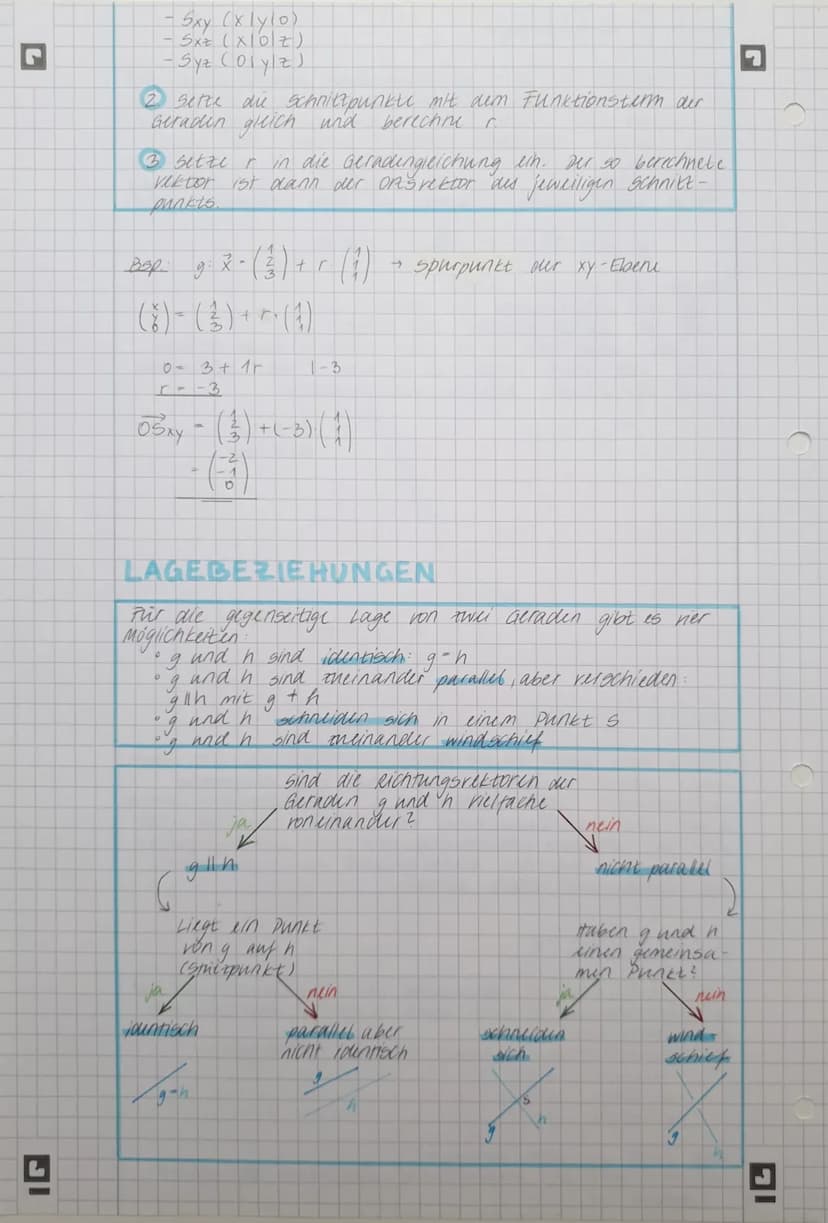 - Sxy (x|y|0)
- Sxz (x|0|z)
- Syz (0|y|z)
2 Setze die Schnittpunkte mit dem Funktionsterm der
Geraden gleich und berechne r.
3 Setze r in die Geradengleichung ein. Der so berechnete
Vektor ist dann der Ortsvektor des jeweiligen Schnitt-
punkts.
Bsp: g: x⃗ = (1 2 3) + r (1 1 1) → Spurpunkt der xy-Ebene
(x y 0) = (1 2 3) + r · (1 1 1)
0 = 3 + 1r | -3
r = -3
OS⃗xy = (1 2 3) + (-3) (1 1 1)
= (-2 -1 0)
LAGEBEZIEHUNGEN
Für die gegenseitige Lage von zwei Geraden gibt es vier
Möglichkeiten:
• g und h sind identisch: g=h
• g und h sind zueinander parallel, aber verschieden:
g||h mit g ≠ h
• g und h schneiden sich in einem Punkt S
• g und h sind zueinander windschief
Sind die Richtungsvektoren der
Geraden g und h vielfache
voneinander?
ja nein
g || h nicht parallel
Liegt ein Punkt
von g auf h
(Stützpunkt)
Haben g und h
einen gemeinsa-
men Punkt?
ja nein ja nein
identisch
parallel aber
nicht identisch
schneiden
sich
wind-
schief
g=h
g
h
S
g
h
g
h